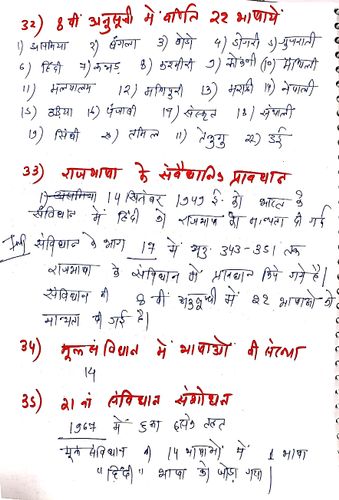 32) 8 वीं अनुसूची में वर्णित 22 भाषायें
1) असमिया 2) बंगला 3) बोडो 4) डोगरी 5) गुजराती
6) हिंदी 7) कन्नड़ 8) कश्मीरी 9) कोंकणी 10) मैथिली
11) मलयालम 12) मणिपुरी 13) मराठी 14) नेपाली
15) उड़िया 16) पंजाबी 17) संस्कृत 18) संथाली
19) सिंधी 20) तमिल 21) तेलुगु 22) उर्दू
33) राजभाषा के संवैधानिक प्रावधान
14 सितंबर 1949 ई. को भारत के
संविधान में हिंदी को राजभाषा की मान्यता दी गई
संविधान के भाग 17 में अनु. 343-351 तक
राजभाषा के संविधान में प्रावधान किये गये हैं।
संविधान की 8 वीं अनुसूची में 22 भाषाओं को
मान्यता दी गई है।
34) मूल संविधान में भाषाओं की संख्या
14
35) 21 वां संविधान संशोधन
1967 में हुआ
मूल संविधान की 14 भाषाओं में 1 भाषा
"सिंधी" भाषा को जोड़ा गया।